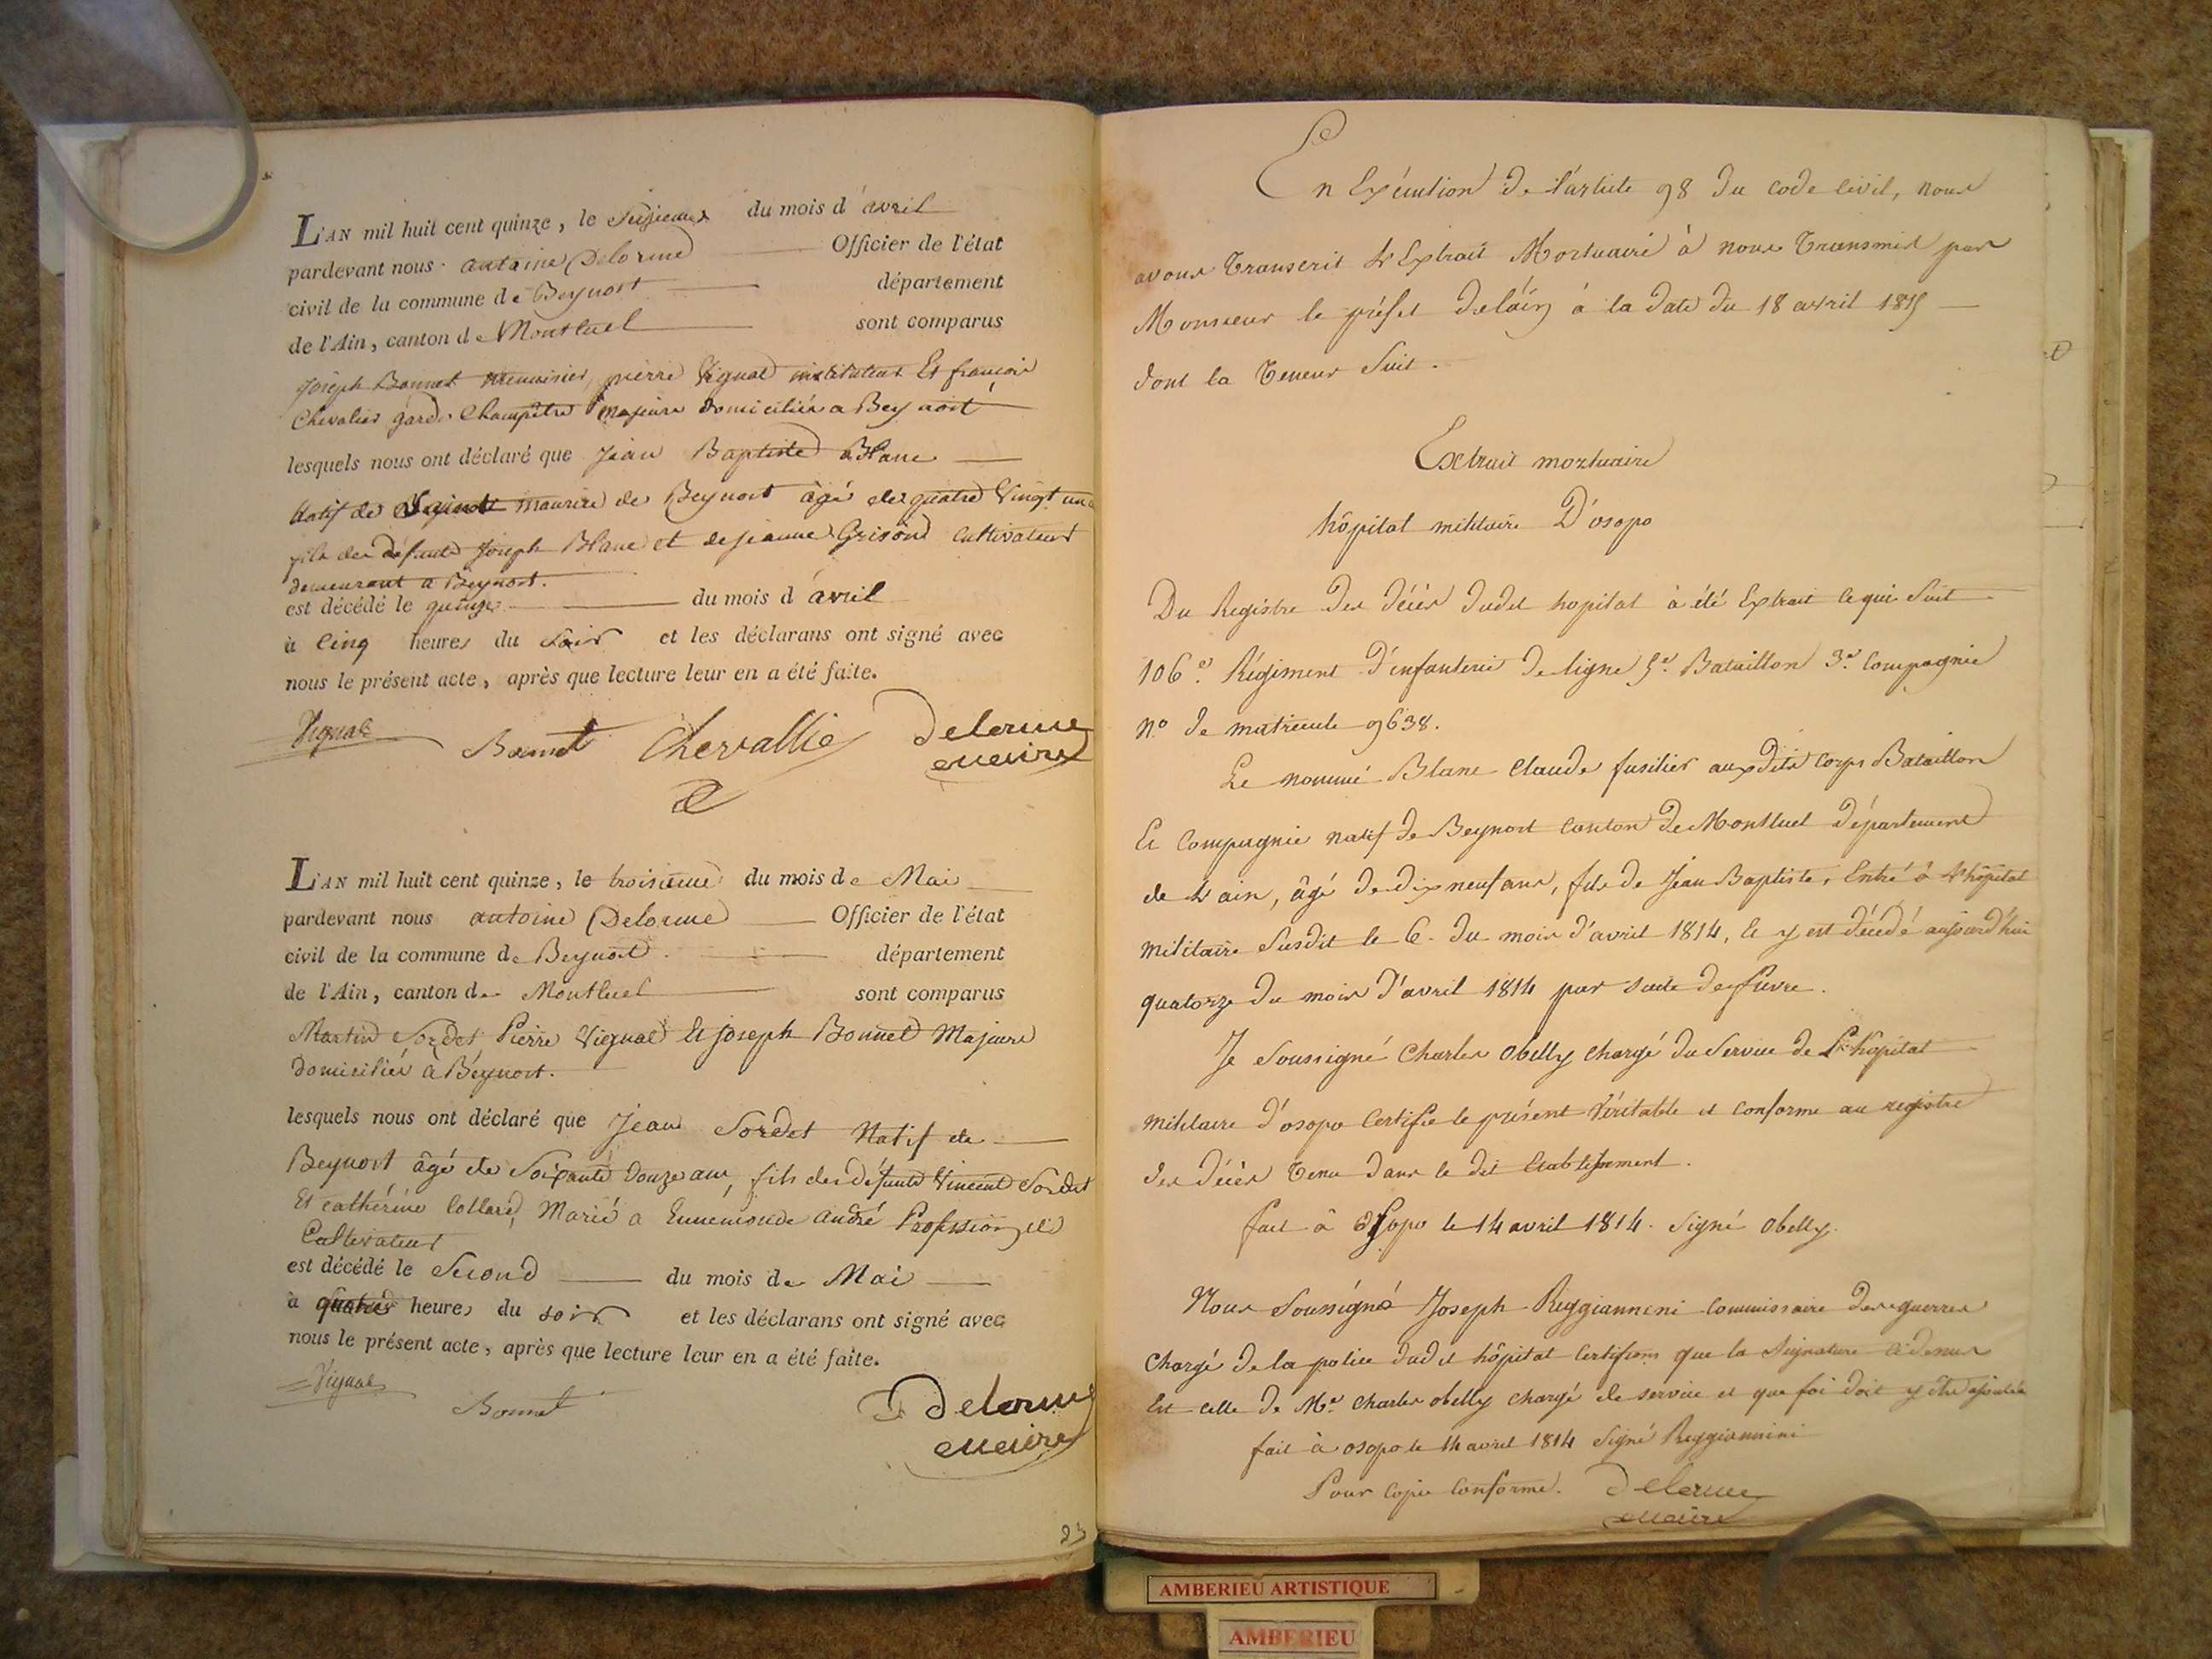 L'AN mil huit cent quinze, le Seizieme du mois d'avril
pardevant nous antoine Delorme Officier de l'état
civil de la commune de Beynost département
de l'Ain, canton de Montluel sont comparus
joseph Bonnet menuisier, pierre Vignal instituteur Et francois
Chevalier garde Champêtre majeurs domiciliés a Beynost
lesquels nous ont déclaré que Jean Baptiste Blanc
Natif de Saint maurice de Beynost âgé de quatre Vingt un
fils de défunts Joseph Blanc et de jeanne Grison Cultivateur
demeurant a Beynost.
est décédé le quinze du mois d'avril
à Cinq heures du Soir et les déclarans ont signé avec
nous le présent acte, après que lecture leur en a été faite.
Vignal Bonnet Chevallié Delorme
maire
L'AN mil huit cent quinze, le troisieme du mois de Mai
pardevant nous antoine Delorme Officier de l'état
civil de la commune de Beynost département
de l'Ain, canton de Montluel sont comparus
Martin Sordet Pierre Vignal Et joseph Bonnet Majeurs
Domiciliés à Béynost.
lesquels nous ont déclaré que Jean Sordet Natif de
Beynost âgé de Soixante Douze ans, fils de défunts Vincent Sordet
Et cathérine Collard, Marié a Ennemonde andré Profession de
Cultivateur
est décédé le Second du mois de Mai
à quatre heures du soir et les déclarans ont signé avec
nous le présent acte, après que lecture leur en a été faite.
Vignal
Bonnet Delorme
maire
23
En Exécution de l'article 98 du code Civil, nous
avons Transcrit L'Extrait Mortuaire à nous Transmis par
Monsieur le préfet de l'ain à la date du 18 avril 1815
dont la Teneur Suit.
Extrait mortuaire
hôpital militaire D'osopo
Du Registre des décès dudit hopital à été Extrait ce qui Suit
106e. Régiment d'infanterie de ligne 5e. Bataillon 3e. Compagnie
No de matricule 9638.
Le nommé Blanc Claude fusilier auxdits Corps Bataillon
Et Compagnie natif de Beynost Canton de Montluel Département
de L'ain, âgé de dix neuf ans, fils de Jean Baptiste, Entré à L'hôpital
militaire Susdit le 6. du mois d'avril 1814, Et y est décédé aujourd'hui
quatorze du mois d'avril 1814 par suite de fievre.
Je Soussigné Charles Obelly chargé du Service de L'hôpital
militaire d'osopo Certifie le présent Véritable et conforme au registre
des décès Tenu dans le dit Etablissement.
fait à Osopo le 14 avril 1814. Signé Obelly.
Nous Soussigné Joseph Reggiannini Commissaire des guerres
Chargé de la police dudit hôpital Certifions que la Signature Ci denus
Est celle de Mr. Charles obelly chargé de service et que foi doit y être ajoutée
fait à osopo le 14 avril 1814 Signé Reggiannini
Pour Copie Conforme. Delorme
maire
AMBERIEU ARTISTIQUE
AMBERIEU